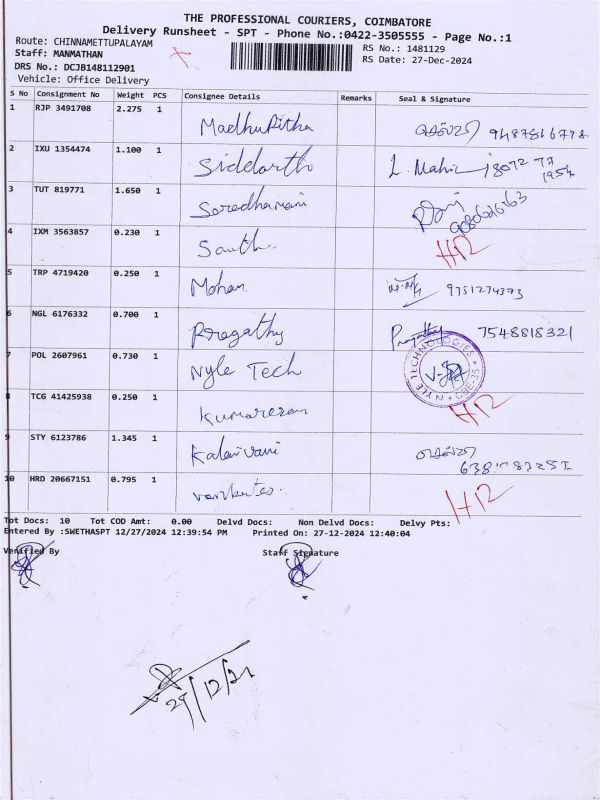 THE PROFESSIONAL COURIERS, COIMBATORE
Delivery Runsheet - SPT - Phone No.:0422-3505555 - Page No.:1
Route: CHINNAMETTUPALAYAM
RS No.: 1481129
Staff: MANMATHAN
RS Date: 27-Dec-2024
DRS No.: DCJB148112901
Vehicle: Office Delivery
S No Consignment No Weight PCS Consignee Details Remarks Seal & Signature
1 RJP 3491708 2.275 1 Madhuritha
2 IXU 1354474 1.100 1 Siddarth L. Mahi
3 TUT 819771 1.650 1
4 IXM 3563857 0.230 1 HR
5 TRP 4719420 0.250 1 Mohan 9751274373
6 NGL 6176332 0.700 1 Pragathy Pragathy 7548818321
7 POL 2607961 0.730 1 Nyle Tech
NYLE TECHNOLOGIES * CBE-35 *
8 TCG 41425938 0.250 1 Kumaresan HR
9 STY 6123786 1.345 1 Kalaivani
10 HRD 20667151 0.795 1 HR
Tot Docs: 10 Tot COD Amt: 0.00 Delvd Docs: Non Delvd Docs: Delvy Pts:
Entered By :SWETHASPT 12/27/2024 12:39:54 PM Printed On: 27-12-2024 12:40:04
Verified By Staff Signature
27/12/24